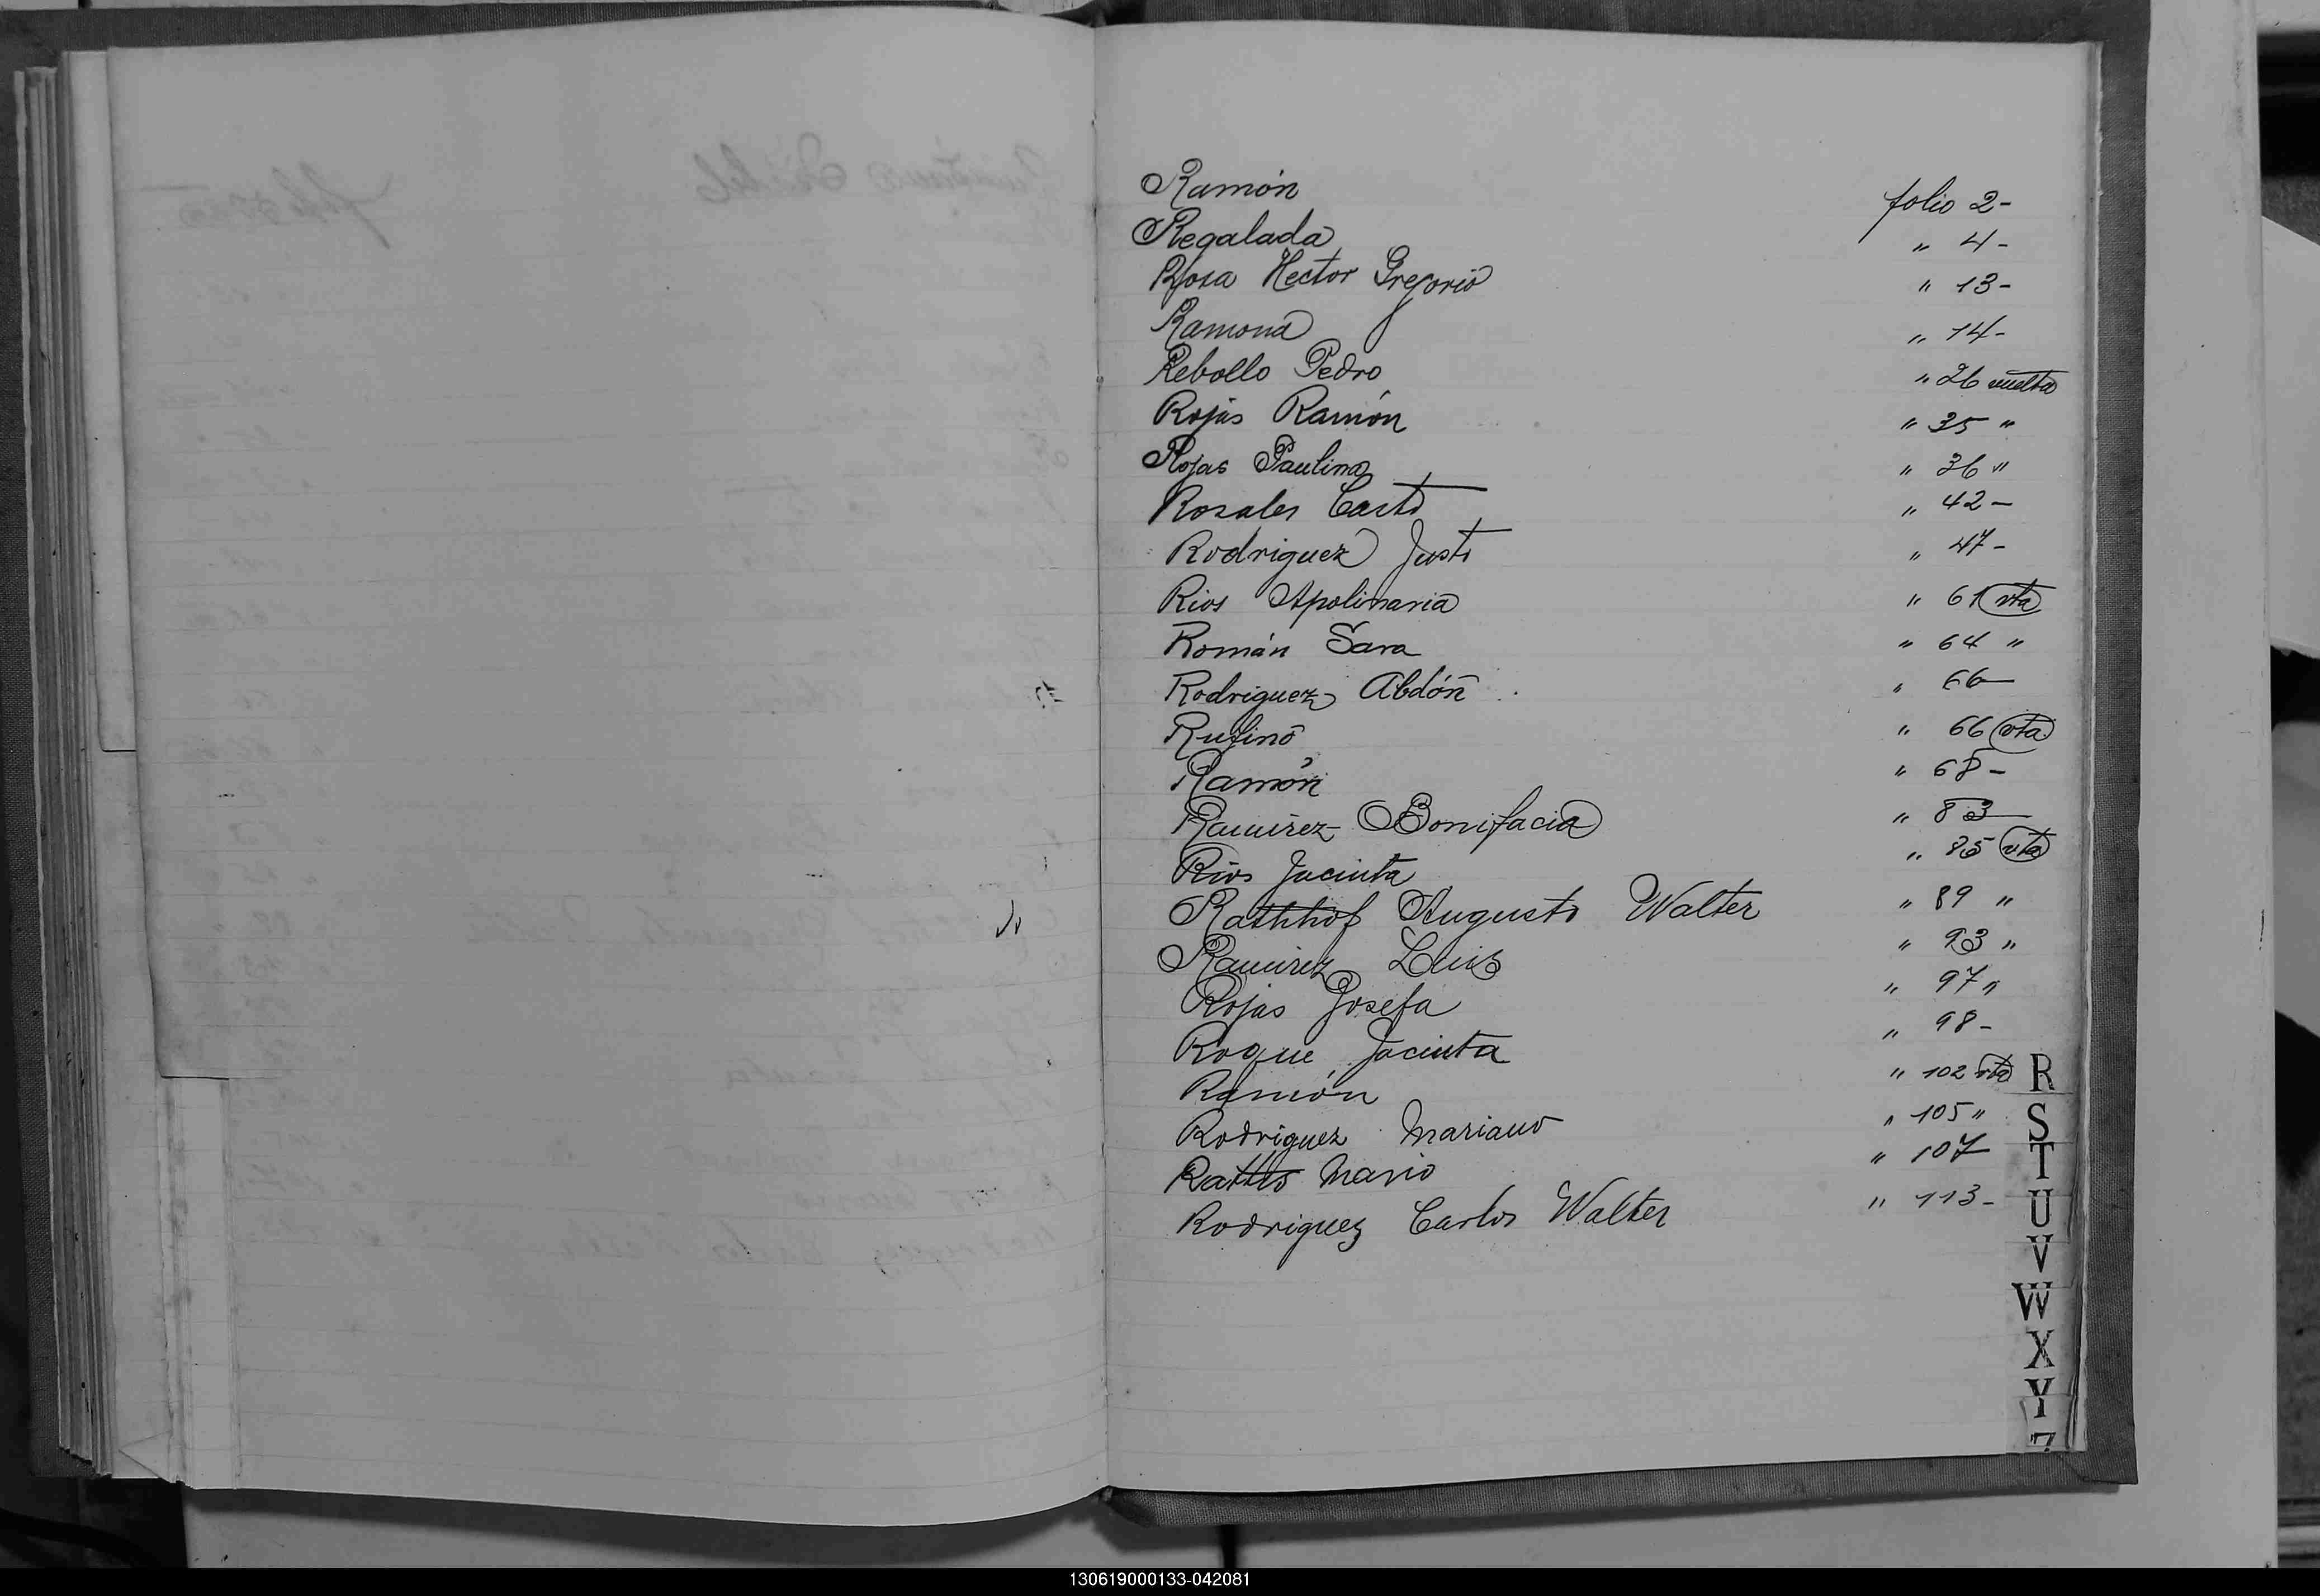 Ramón folio 2-
Regalada " 4-
Rosa Hector Gregorio " 13-
Ramona " 14-
Rebollo Pedro " 26 vuelta
Rojas Ramón " 35 "
Rojas Paulina " 36 "
Rosales Casto " 42-
Rodriguez Justo " 47-
Rios Apolinaria " 61 vta
Román Sara " 64 "
Rodriguez Abdón " 66-
Rufino " 66 vta
Ramón " 68-
Ramírez Bonifacia " 83-
Rios Jacinta " 85 vta
Rathhof Augusto Walter " 89 "
Ramirez Luis " 93 "
Rojas Josefa " 97 "
Roque Jacinta " 98-
Ramón " 102 vta
Rodriguez Mariano " 105 "
Mario " 107
Rodriguez Carlos Walter " 113-
R
S
T
U
V
W
X
Y
Z
130619000133-042081